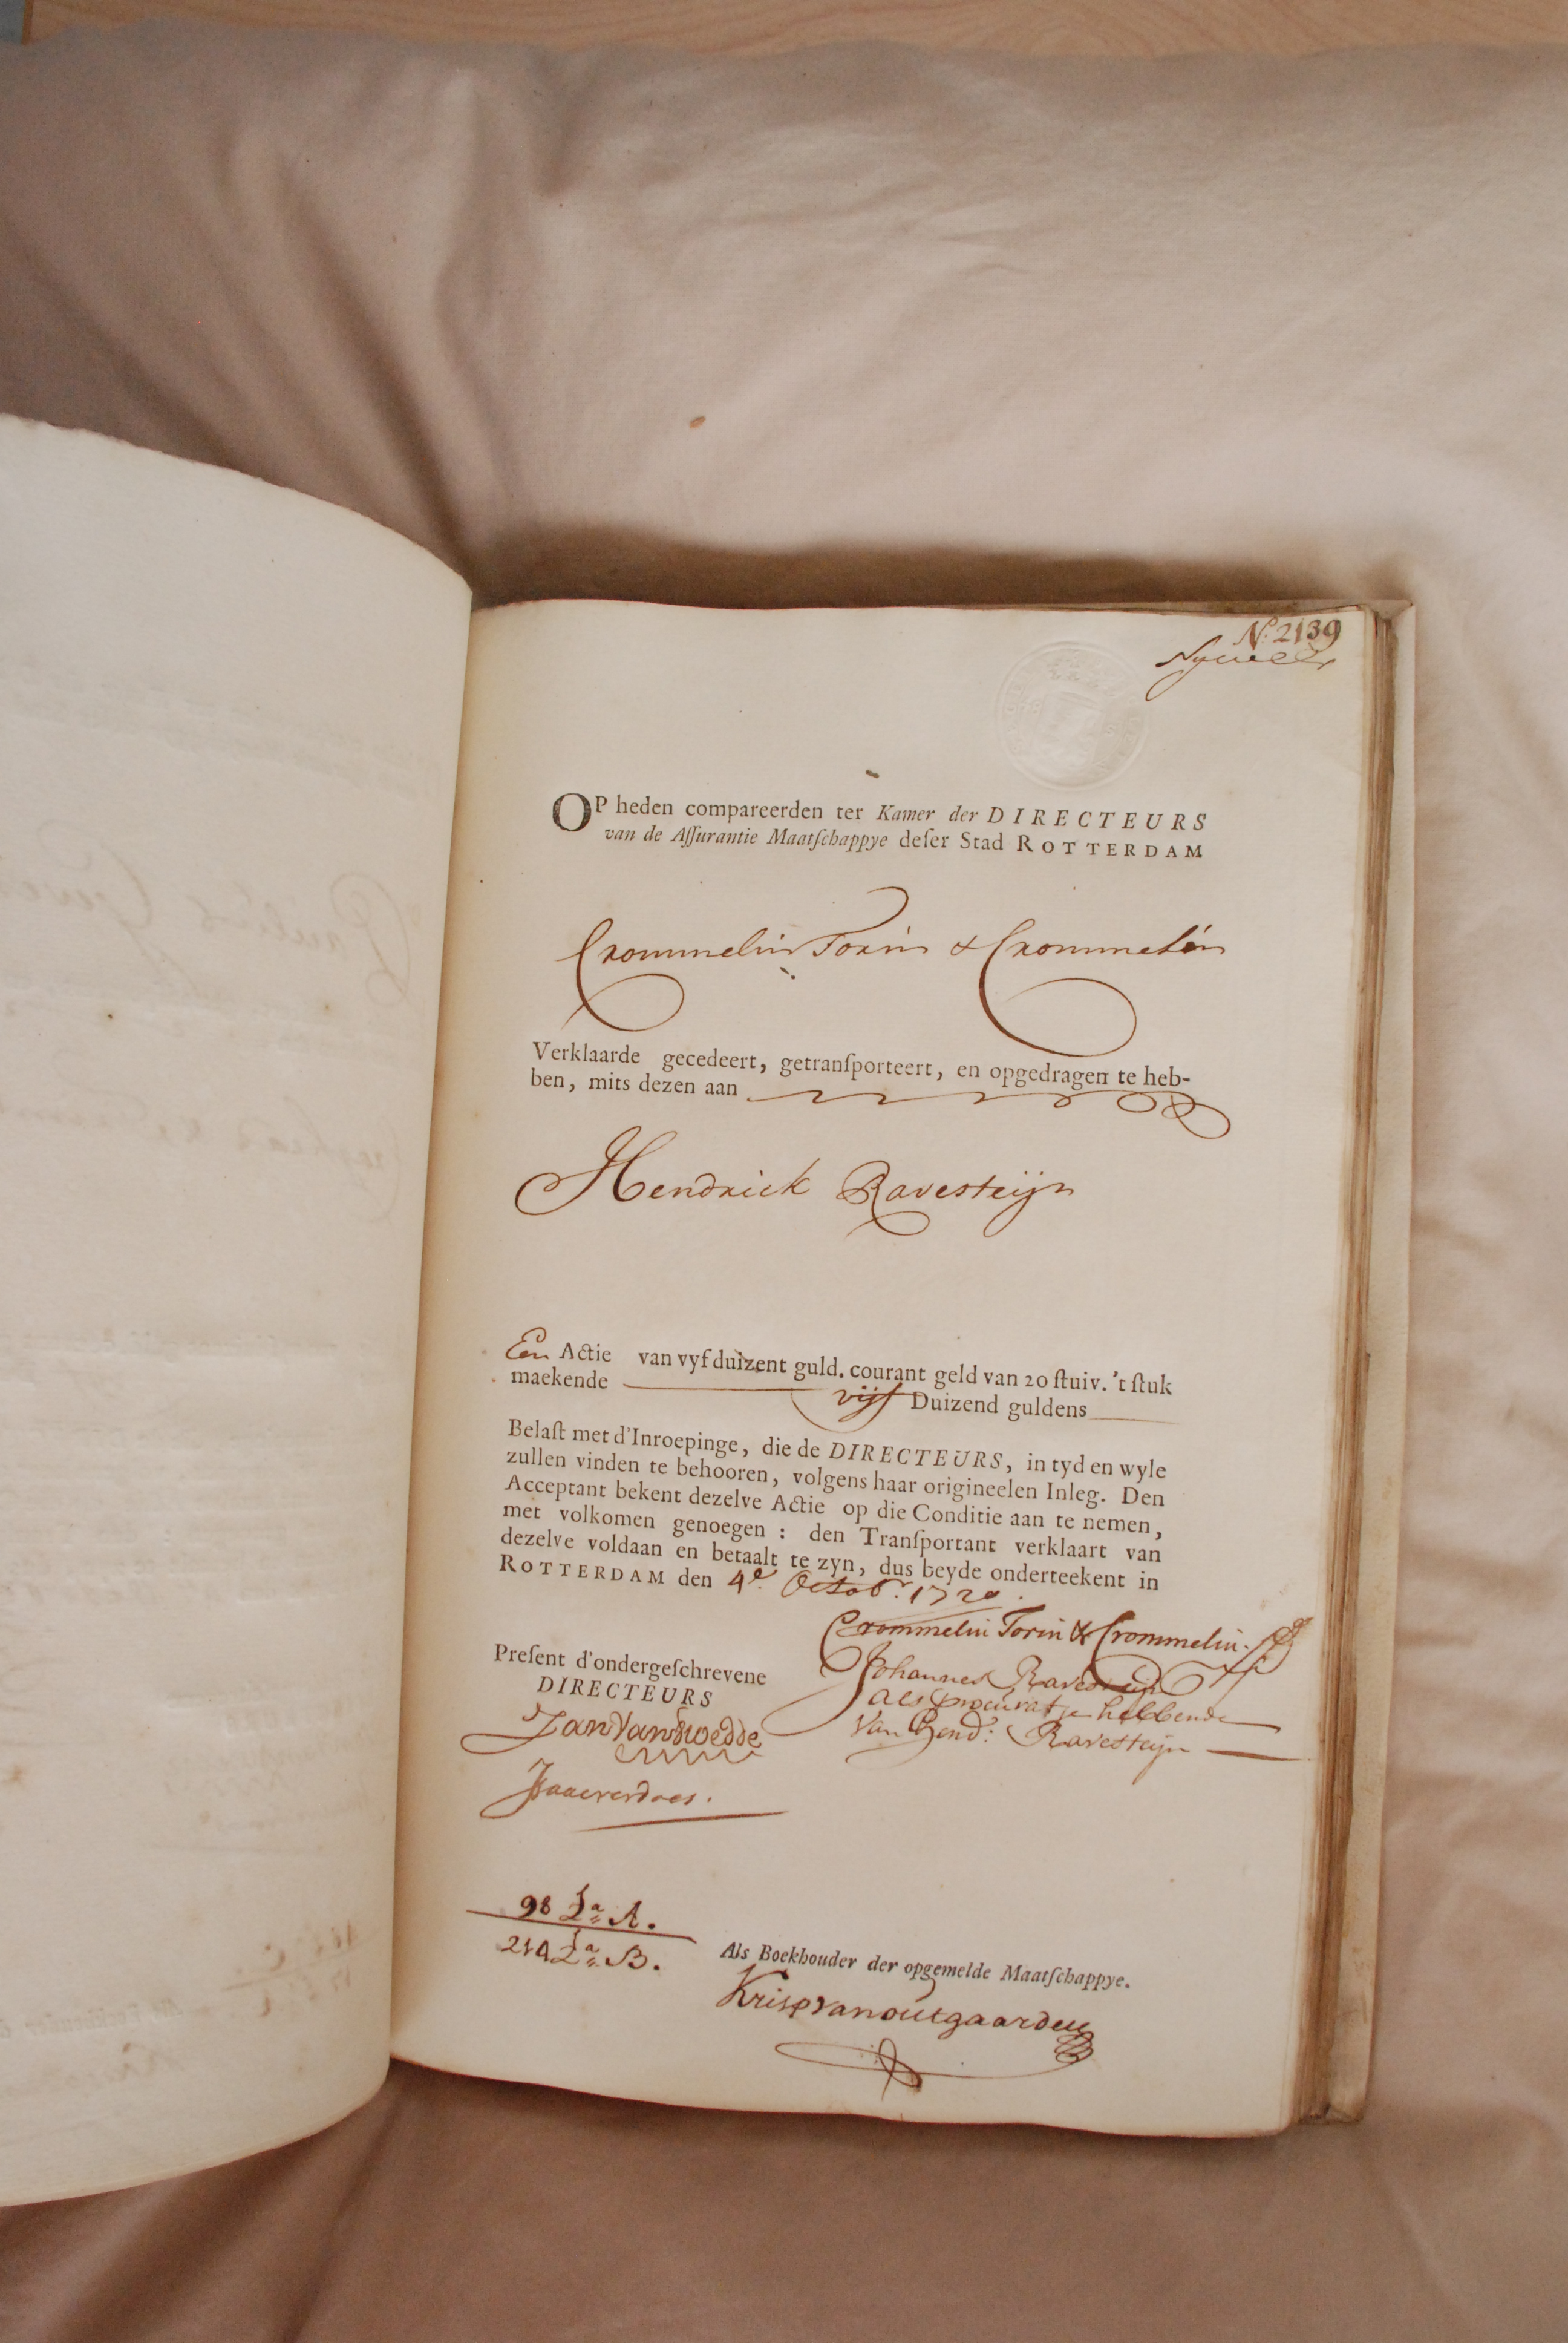 N.º 2139
OP heden compareerden ter Kamer der DIRECTEURS
van de Aſſurantie Maatſchappye deſer Stad ROTTERDAM
Crommelin Torin & Crommelin
Verklaarde gecedeert, getranſporteert, en opgedragen te heb-
ben, mits dezen aan
Hendrick Ravesteijn
Een Actie van vyf duizent guld. courant geld van 20 ſtuiv. 't ſtuk
maekende vijf Duizend guldens
Belaſt met d'Inroepinge, die de DIRECTEURS, in tyd en wyle
zullen vinden te behooren, volgens haar origineelen Inleg. Den
Acceptant bekent dezelve Actie op die Conditie aan te nemen,
met volkomen genoegen : den Tranſportant verklaart van
dezelve voldaan en betaalt te zyn, dus beyde onderteekent in
ROTTERDAM den 4e. Octob.r 1720.
Crommelin Torin & Crommelin.
Johannes Ravesteijn
als procuratie hebbende
van Hend: Ravesteijn
Preſent d'ondergeſchrevene
DIRECTEURS
98 La A.
214 La B.
Als Boekhouder der opgemelde Maatſchappye.
Kris van outgaarden